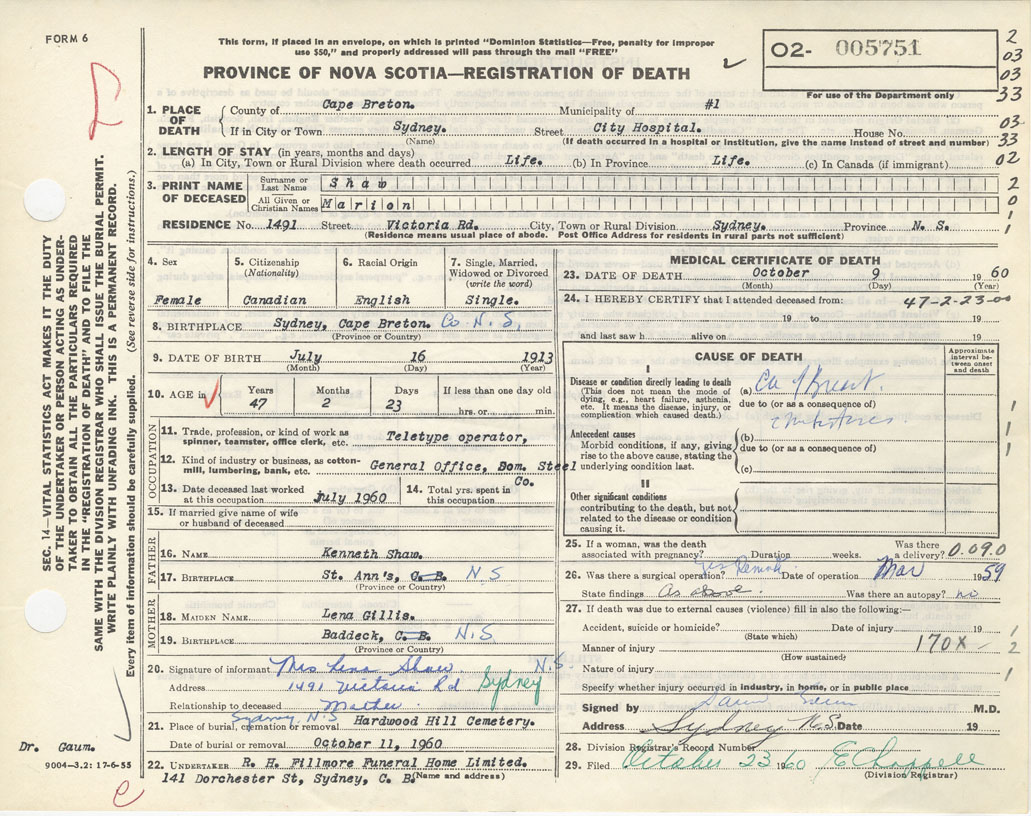 FORM 6
This form, if placed in an envelope, on which is printed "Dominion Statistics—Free, penalty for improper
use $50," and properly addressed will pass through the mail "FREE"
PROVINCE OF NOVA SCOTIA—REGISTRATION OF DEATH
02- 005751
For use of the Department only
2
03
03
33
03
33
02
2
0
1
1
1. PLACE OF DEATH
County of Cape Breton. Municipality of #1
If in City or Town Sydney. Street City Hospital. House No.
(Name) (If death occurred in a hospital or institution, give the name instead of street and number)
2. LENGTH OF STAY (in years, months and days)
(a) In City, Town or Rural Division where death occurred Life. (b) In Province Life. (c) In Canada (if immigrant)
3. PRINT NAME OF DECEASED
Surname or Last Name Shaw
All Given or Christian Names Marion
RESIDENCE No. 1491 Street Victoria Rd. City, Town or Rural Division Sydney. Province N. S.
(Residence means usual place of abode. Post Office Address for residents in rural parts not sufficient)
4. Sex
Female
5. Citizenship
(Nationality)
Canadian
6. Racial Origin
English
7. Single, Married, Widowed or Divorced
(write the word)
Single.
8. BIRTHPLACE Sydney, Cape Breton. Co N.S.
(Province or Country)
9. DATE OF BIRTH July 16 1913
(Month) (Day) (Year)
10. AGE in Years Months Days If less than one day old
47 2 23 hrs. or min.
OCCUPATION
11. Trade, profession, or kind of work as
spinner, teamster, office clerk, etc. Teletype operator,
12. Kind of industry or business, as cotton-
mill, lumbering, bank, etc. General Office, Dom. Steel Co.
13. Date deceased last worked
at this occupation July 1960
14. Total yrs. spent in
this occupation
15. If married give name of wife
or husband of deceased
FATHER
16. NAME Kenneth Shaw.
17. BIRTHPLACE St. Ann's, C. B. N.S
(Province or Country)
MOTHER
18. MAIDEN NAME Lena Gillis.
19. BIRTHPLACE Baddeck, C. B. N.S
(Province or Country)
20. Signature of informant Mrs Lena Shaw. N.S
Address 1491 Victoria Rd Sydney
Relationship to deceased Mother
Sydney N.S
21. Place of burial, cremation or removal Hardwood Hill Cemetery.
Date of burial or removal October 11, 1960
22. UNDERTAKER R. H. Fillmore Funeral Home Limited.
141 Dorchester St, Sydney, C. B. (Name and address)
MEDICAL CERTIFICATE OF DEATH
23. DATE OF DEATH October 9 1960
(Month) (Day) (Year)
24. I HEREBY CERTIFY that I attended deceased from: 47-2-23-00
19 to 19
and last saw h alive on 19
CAUSE OF DEATH
Approximate interval between onset and death
I
Disease or condition directly leading to death
(This does not mean the mode of
dying, e.g., heart failure, asthenia,
etc. It means the disease, injury, or
complication which caused death.)
(a) Ca of Breast.
due to (or as a consequence of)
Antecedent causes
Morbid conditions, if any, giving
rise to the above cause, stating the
underlying condition last.
(b)
due to (or as a consequence of)
(c)
II
Other significant conditions
contributing to the death, but not
related to the disease or condition
causing it.
1
1
1
25. If a woman, was the death
associated with pregnancy? Duration weeks. Was there a delivery? 0.090
26. Was there a surgical operation? Yes Date of operation Mar 1959
State findings As above. Was there an autopsy? no
27. If death was due to external causes (violence) fill in also the following:—
Accident, suicide or homicide? Date of injury 19
(State which)
Manner of injury 170X
(How sustained)
Nature of injury
Specify whether injury occurred in industry, in home, or in public place
1
2
1
Signed by M.D.
Address Sydney N.S. Date 19
28. Division Registrar's Record Number
29. Filed October 23 1960 E Chappell
(Division Registrar)
SEC. 14—VITAL STATISTICS ACT MAKES IT THE DUTY
OF THE UNDERTAKER OR PERSON ACTING AS UNDER-
TAKER TO OBTAIN ALL THE PARTICULARS REQUIRED
IN THE "REGISTRATION OF DEATH" AND TO FILE THE
SAME WITH THE DIVISION REGISTRAR WHO SHALL ISSUE THE BURIAL PERMIT.
WRITE PLAINLY WITH UNFADING INK. THIS IS A PERMANENT RECORD.
Every item of information should be carefully supplied. (See reverse side for instructions.)
Dr. Gaum.
9004—3.2: 17-6-55